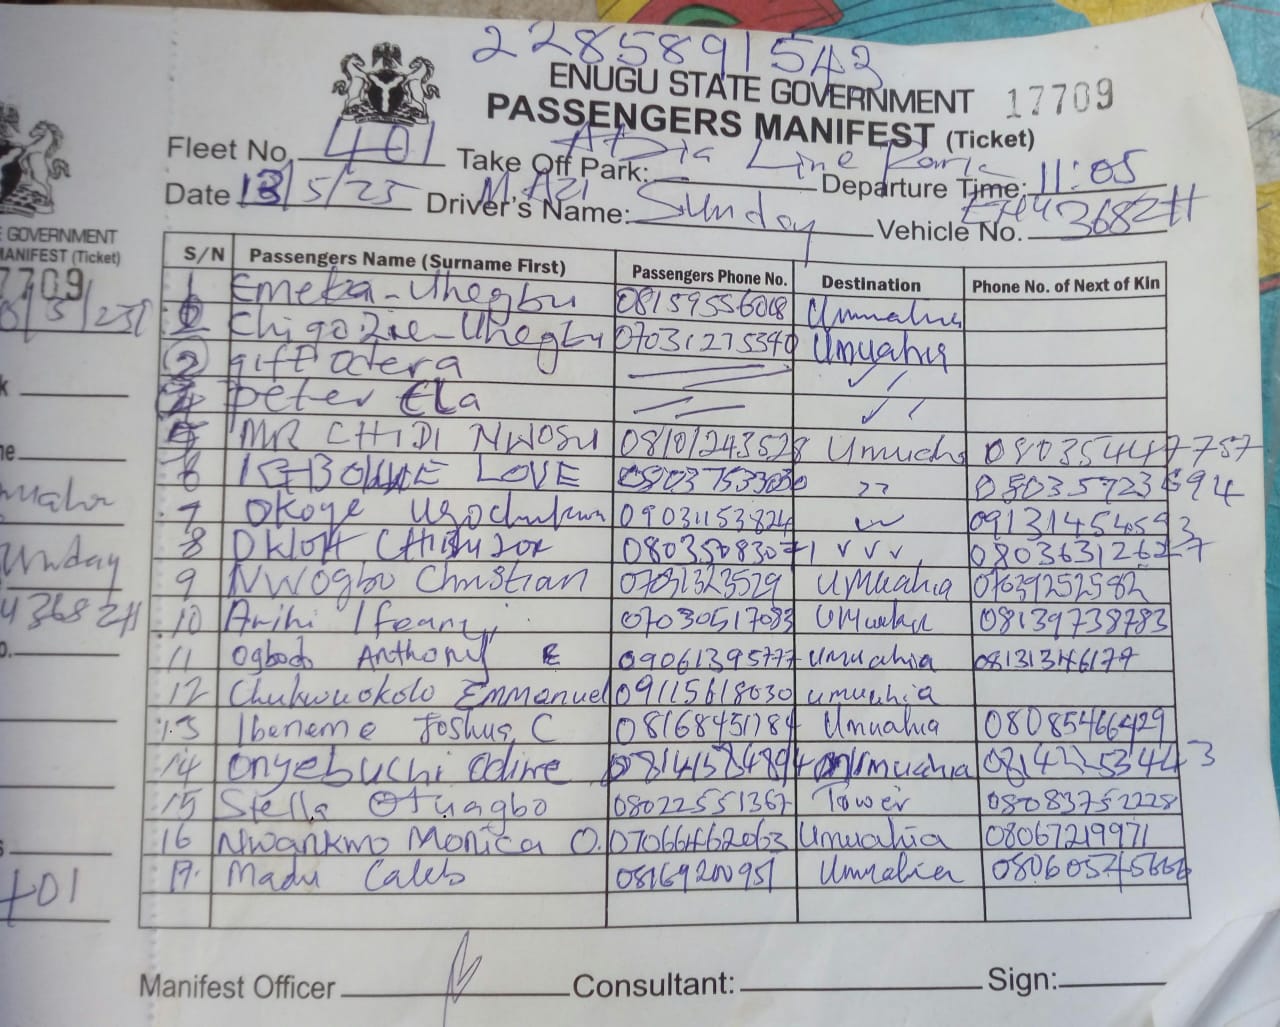 22858891543
ENUGU STATE GOVERNMENT 17709
PASSENGERS MANIFEST (Ticket)
Fleet No. 401 Take Off Park: Abia Line Park Departure Time: 11:05
Date 13/5/25 Driver's Name: MAZI Sunday Vehicle No. 43682H
S/N Passengers Name (Surname First) Passengers Phone No. Destination Phone No. of Next of Kin
1 Emeka-Uhegbu Umuahia
Chigozie-Uhegbu 07031275340 Umuahia
2 gift odera
4 Peter Ela
5 MR CHIDI NWOSU 08101243528 Umuahia
6 LOVE ,,
7 Okoye Ugochukwu 09031153824
8 08035083071 ✓✓✓
9 NWOgbo Christian 07031323529 UMuahia 07039252582
10 Arihi Ifeanyi 07030517083 UMuahia 08139738783
11 Ogbodo Anthony E 09061395777 Umuahia
12 Chukwuokolo Emmanuel 09115618030 umuahia
13 Ibeneme Joshua C 08168451784 Umuahia 08085466429
14 Onyebuchi Odiwe 08141584894 Umuahia
15 Stella Otuagbo 08022551367 Tower 08083752228
16 Nwankwo Monica O. 07066462063 Umuahia 08067219971
17. Madu Caleb 08169200951 Umuahia
Manifest Officer Consultant: Sign:
GOVERNMENT
MANIFEST (Ticket)
7709
/5/25
Sunday
43682H
401